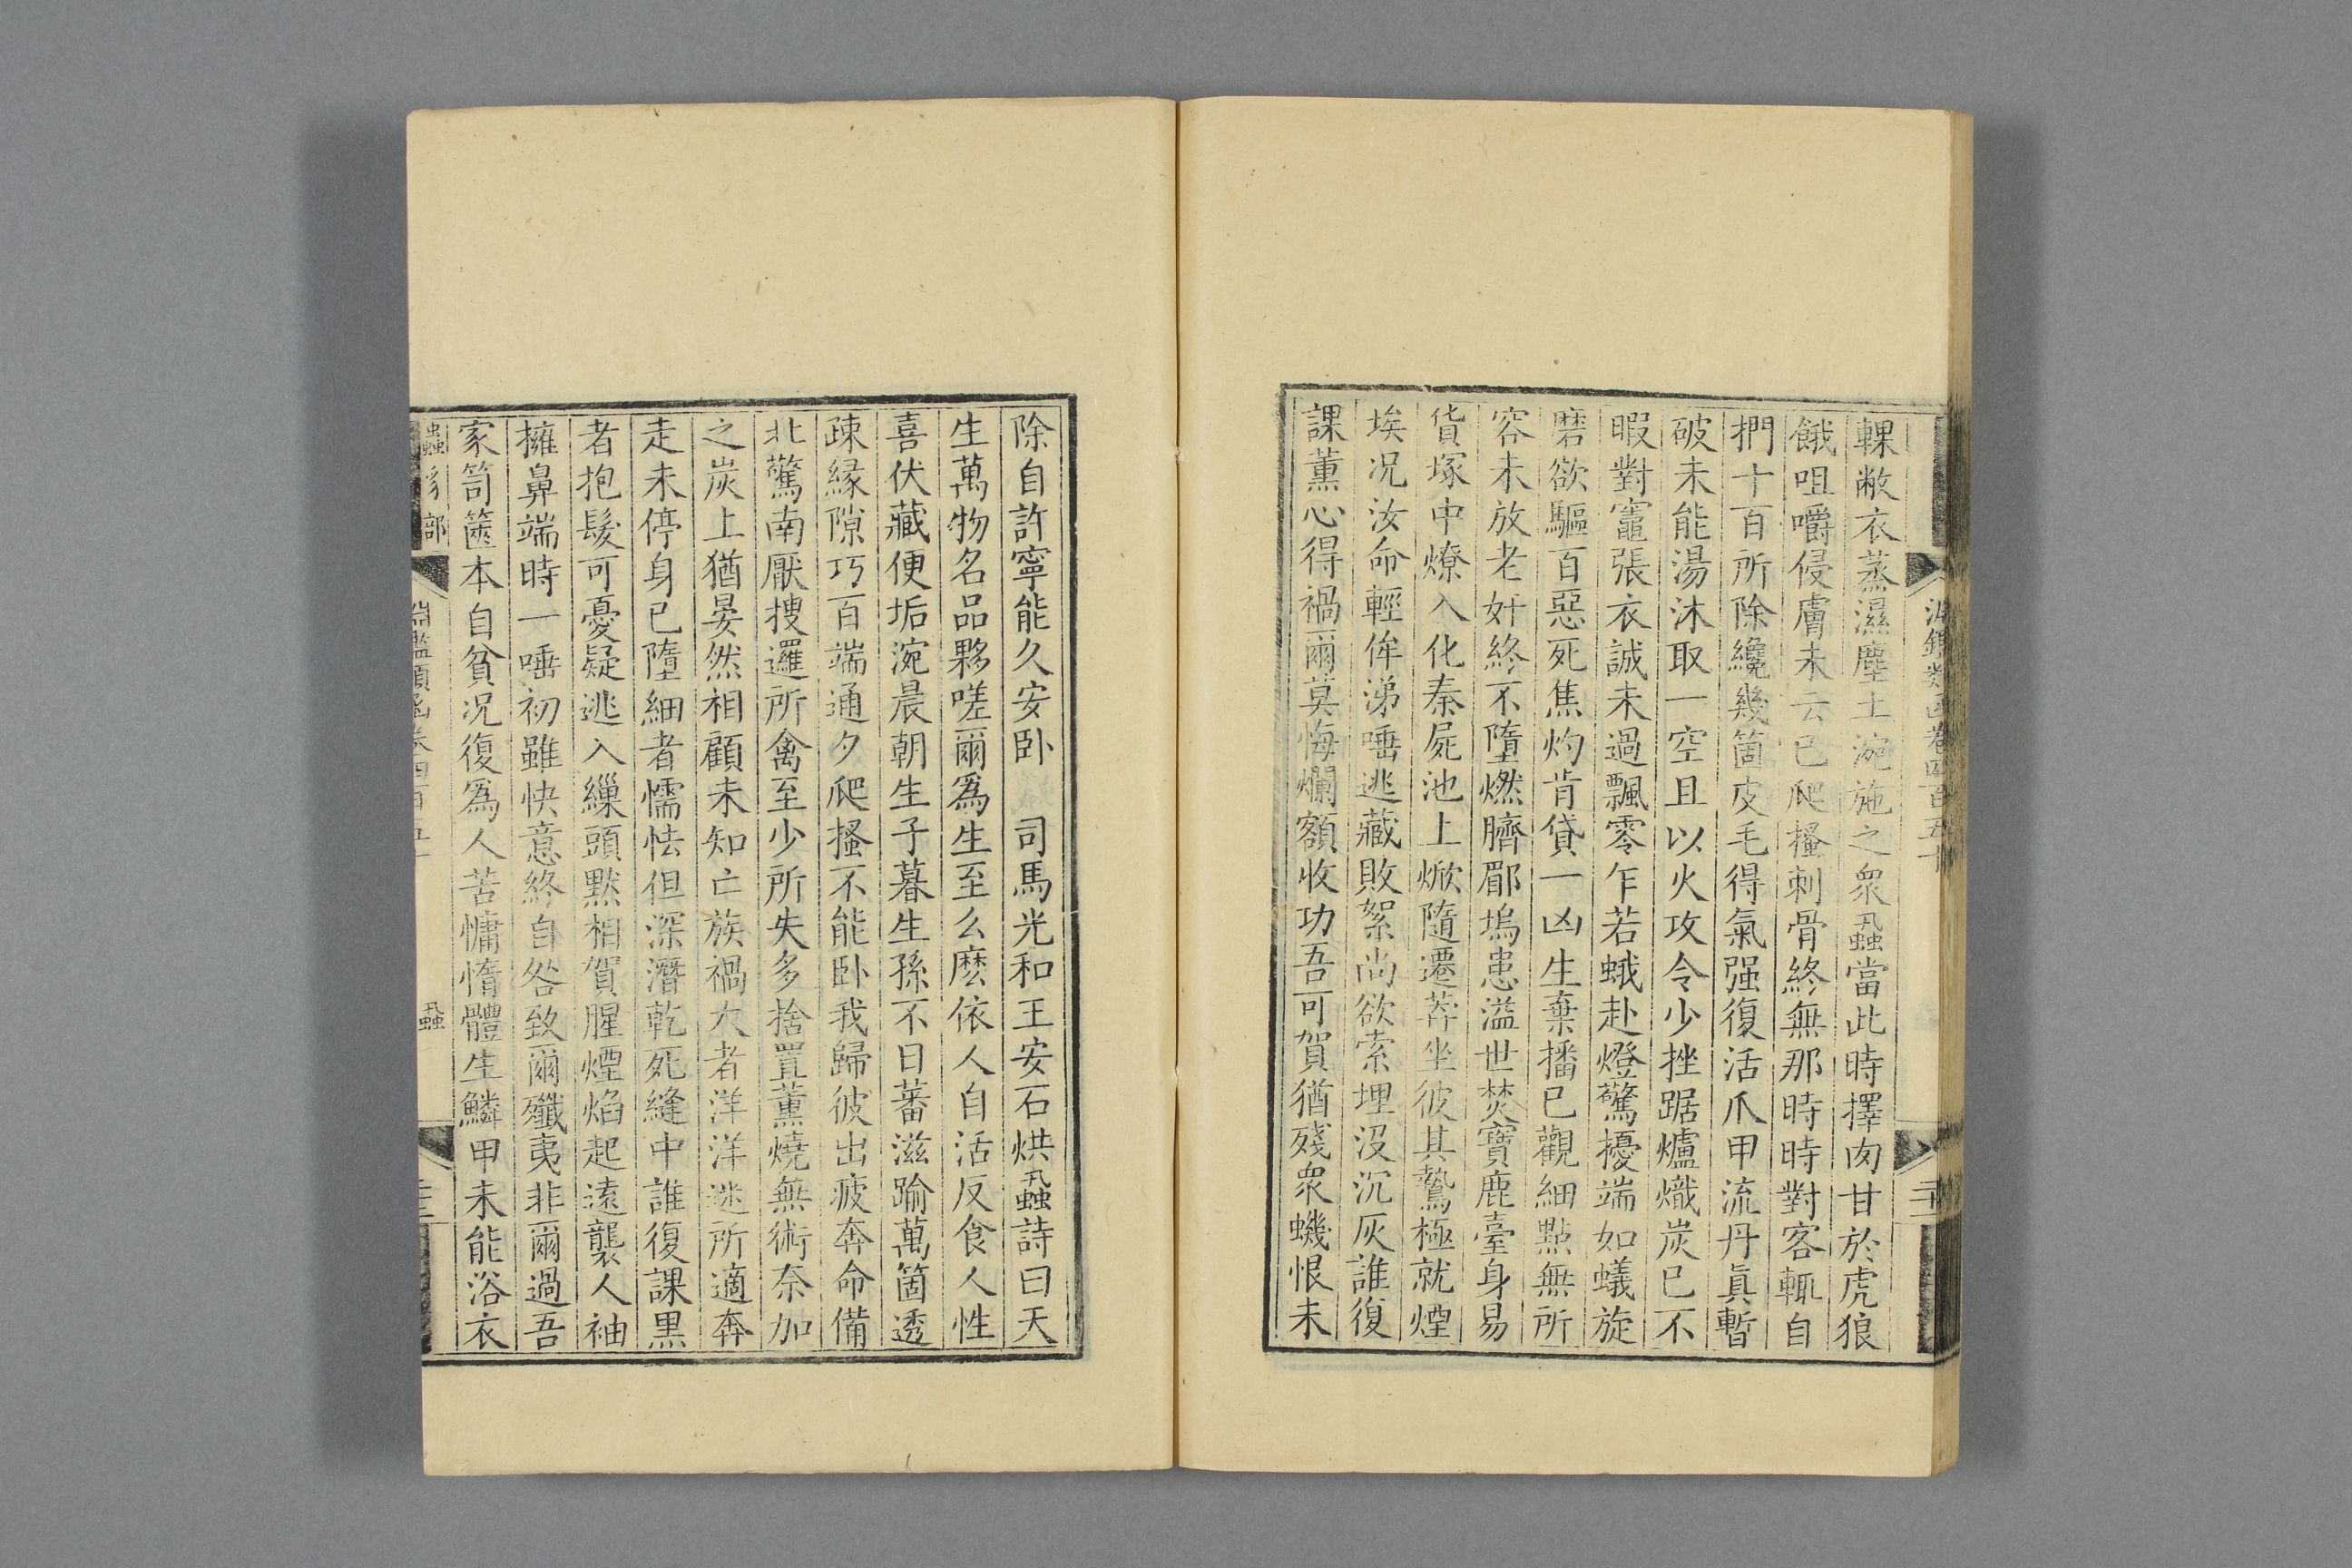 淵鑑類函卷四百五十
二十
輠敝衣蒸濕塵土涴施之衆蝨當此時擇肉甘於虎狼
餓咀嚼侵膚未云已爬搔刺骨終無那時時對客輒自
捫十百所除纔幾箇皮毛得氣强復活爪甲流丹眞暫
破未能湯沐取一空且以火攻令少挫踞爐熾炭已不
暇對竈張衣誠未過飄零乍若蛾赴燈驚擾端如蟻旋
磨欲驅百惡死焦灼肯貸一凶生棄播已觀細黠無所
容未放老奸終不墮燃臍郿塢患溢世焚寶鹿臺身易
貨塚中燎入化秦屍池上焮隨遷莽坐彼其鷙極就煙
埃况汝命輕侔涕唾逃藏敗絮尚欲索埋沒沉灰誰復
課薰心得禍爾莫悔爛額收功吾可賀猶殘衆蟣恨未
除自許寧能久安卧　司馬光和王安石烘蝨詩曰天
生萬物名品夥嗟爾爲生至么麽依人自活反食人性
喜伏藏便垢涴晨朝生子暮生孫不日蕃滋踰萬箇透
疎緣隙巧百端通夕爬搔不能卧我歸彼出疲奔命備
北驚南厭搜邏所禽至少所失多捨置薰燒無術奈加
之炭上猶晏然相顧未知亡族禍大者洋洋迷所適奔
走未停身已墮細者懦怯但深潛乾死縫中誰復課黑
者抱髮可憂疑逃入繅頭默相賀腥煙焰起遠襲人袖
擁鼻端時一唾初雖快意終自咎致爾殲夷非爾過吾
家笥篋本自貧况復爲人苦慵惰體生鱗甲未能浴衣
蟲豸部
淵鑑類函卷四百五十
蝨